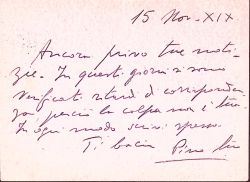 15 Nov. XIX
Ancora privo tue noti-
zie. In questi giorni si sono
verificati ritardi di corrisponden-
za, perciò la colpa non è tua.
In ogni modo scrivi spesso.
Ti bacia Pino